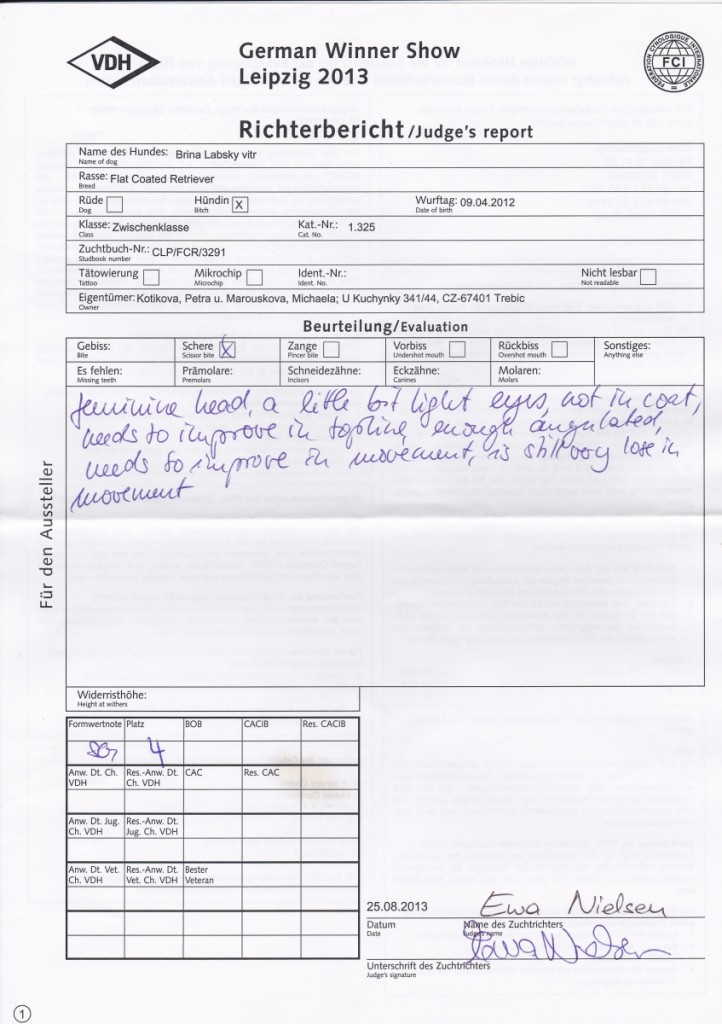 VDH
German Winner Show
Leipzig 2013
FEDERATION CYNOLOGIQUE INTERNATIONALE
FCI
Richterbericht /Judge's report
Name des Hundes: Brina Labsky vitr
Name of dog
Rasse: Flat Coated Retriever
Breed
Rüde Hündin X Wurftag: 09.04.2012
Dog Bitch Date of birth
Klasse: Zwischenklasse Kat.-Nr.: 1.325
Class Cat. No.
Zuchtbuch-Nr.: CLP/FCR/3291
Studbook number
Tätowierung Mikrochip Ident.-Nr.: Nicht lesbar
Tattoo Microchip Ident. No. Not readable
Eigentümer: Kotikova, Petra u. Marouskova, Michaela; U Kuchynky 341/44, CZ-67401 Trebic
Owner
Beurteilung/Evaluation
Gebiss: Schere X Zange Vorbiss Rückbiss Sonstiges:
Bite Scissor bite Pincer bite Undershot mouth Overshot mouth Anything else
Es fehlen: Prämolare: Schneidezähne: Eckzähne: Molaren:
Missing teeth Premolars Incisors Canines Molars
feminine head, a little bit light eyes, not in coat,
needs to improve in topline, enough angulated,
needs to improve in movement, is still very lose in
movement
Für den Aussteller
Widerristhöhe:
Height at withers
Formwertnote Platz BOB CACIB Res. CACIB
SG 4
Anw. Dt. Ch. Res.-Anw. Dt. CAC Res. CAC
VDH Ch. VDH
Anw. Dt. Jug. Res.-Anw. Dt.
Ch. VDH Jug. Ch. VDH
Anw. Dt. Vet. Res.-Anw. Dt. Bester
Ch. VDH Vet. Ch. VDH Veteran
25.08.2013 Ewa Nielsen
Datum Name des Zuchtrichters
Date Judge's name
Ewa Nielsen
Unterschrift des Zuchtrichters
Judge's signature
1